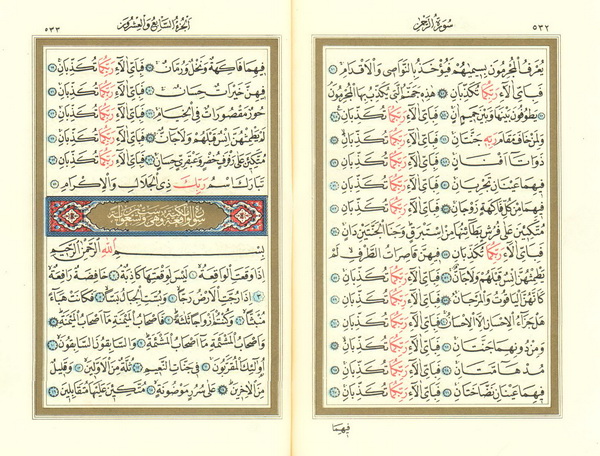 سُورَةُ الرَّحْمٰنِ ٥٣٢
يُعْرَفُ الْمُجْرِمُونَ بِسِيمٰيهُمْ فَيُؤْخَذُ بِالنَّوَاصِى وَالْاَقْدَامِ
فَبِاَىِّ اٰلَاءِ رَبِّكُمَا تُكَذِّبَانِ هٰذِهِ جَهَنَّمُ الَّتِى يُكَذِّبُ بِهَا الْمُجْرِمُونَ
يَطُوفُونَ بَيْنَهَا وَبَيْنَ حَمِيمٍ اٰنٍ فَبِاَىِّ اٰلَاءِ رَبِّكُمَا تُكَذِّبَانِ
وَلِمَنْ خَافَ مَقَامَ رَبِّهِ جَنَّتَانِ فَبِاَىِّ اٰلَاءِ رَبِّكُمَا تُكَذِّبَانِ
ذَوَاتَا اَفْنَانٍ فَبِاَىِّ اٰلَاءِ رَبِّكُمَا تُكَذِّبَانِ
فِيهِمَا عَيْنَانِ تَجْرِيَانِ فَبِاَىِّ اٰلَاءِ رَبِّكُمَا تُكَذِّبَانِ
فِيهِمَا مِنْ كُلِّ فَاكِهَةٍ زَوْجَانِ فَبِاَىِّ اٰلَاءِ رَبِّكُمَا تُكَذِّبَانِ
مُتَّكِـِٔينَ عَلٰى فُرُشٍ بَطَائِنُهَا مِنْ اِسْتَبْرَقٍ وَجَنَا الْجَنَّتَيْنِ دَانٍ
فَبِاَىِّ اٰلَاءِ رَبِّكُمَا تُكَذِّبَانِ فِيهِنَّ قَاصِرَاتُ الطَّرْفِ لَمْ
يَطْمِثْهُنَّ اِنْسٌ قَبْلَهُمْ وَلَا جَانٌّ فَبِاَىِّ اٰلَاءِ رَبِّكُمَا تُكَذِّبَانِ
كَاَنَّهُنَّ الْيَاقُوتُ وَالْمَرْجَانُ فَبِاَىِّ اٰلَاءِ رَبِّكُمَا تُكَذِّبَانِ
هَلْ جَزَاءُ الْاِحْسَانِ اِلَّا الْاِحْسَانُ فَبِاَىِّ اٰلَاءِ رَبِّكُمَا تُكَذِّبَانِ
وَمِنْ دُونِهِمَا جَنَّتَانِ فَبِاَىِّ اٰلَاءِ رَبِّكُمَا تُكَذِّبَانِ
مُدْهَامَّتَانِ فَبِاَىِّ اٰلَاءِ رَبِّكُمَا تُكَذِّبَانِ
فِيهِمَا عَيْنَانِ نَضَّاخَتَانِ فَبِاَىِّ اٰلَاءِ رَبِّكُمَا تُكَذِّبَانِ
فِيهِمَا
اَلْجُزْءُ السَّابِعُ وَالْعِشْرُونَ ٥٣٣
فِيهِمَا فَاكِهَةٌ وَنَخْلٌ وَرُمَّانٌ فَبِاَىِّ اٰلَاءِ رَبِّكُمَا تُكَذِّبَانِ
فِيهِنَّ خَيْرَاتٌ حِسَانٌ فَبِاَىِّ اٰلَاءِ رَبِّكُمَا تُكَذِّبَانِ
حُورٌ مَقْصُورَاتٌ فِى الْخِيَامِ فَبِاَىِّ اٰلَاءِ رَبِّكُمَا تُكَذِّبَانِ
لَمْ يَطْمِثْهُنَّ اِنْسٌ قَبْلَهُمْ وَلَا جَانٌّ فَبِاَىِّ اٰلَاءِ رَبِّكُمَا تُكَذِّبَانِ
مُتَّكِـِٔينَ عَلٰى رَفْرَفٍ خُضْرٍ وَعَبْقَرِىٍّ حِسَانٍ فَبِاَىِّ اٰلَاءِ رَبِّكُمَا تُكَذِّبَانِ
تَبَارَكَ اسْمُ رَبِّكَ ذِى الْجَلَالِ وَالْاِكْرَامِ
بِسْمِ اللّٰهِ الرَّحْمٰنِ الرَّحِيمِ
اِذَا وَقَعَتِ الْوَاقِعَةُ لَيْسَ لِوَقْعَتِهَا كَاذِبَةٌ خَافِضَةٌ رَافِعَةٌ
اِذَا رُجَّتِ الْاَرْضُ رَجًّا وَبُسَّتِ الْجِبَالُ بَسًّا فَكَانَتْ هَبَاءً
مُنْبَثًّا وَكُنْتُمْ اَزْوَاجًا ثَلٰثَةً فَاَصْحَابُ الْمَيْمَنَةِ مَا اَصْحَابُ الْمَيْمَنَةِ
وَاَصْحَابُ الْمَشْـَٔمَةِ مَا اَصْحَابُ الْمَشْـَٔمَةِ وَالسَّابِقُونَ السَّابِقُونَ
اُولٰئِكَ الْمُقَرَّبُونَ فِى جَنَّاتِ النَّعِيمِ ثُلَّةٌ مِنَ الْاَوَّلِينَ وَقَلِيلٌ
مِنَ الْاٰخِرِينَ عَلٰى سُرُرٍ مَوْضُونَةٍ مُتَّكِـِٔينَ عَلَيْهَا مُتَقَابِلِينَ